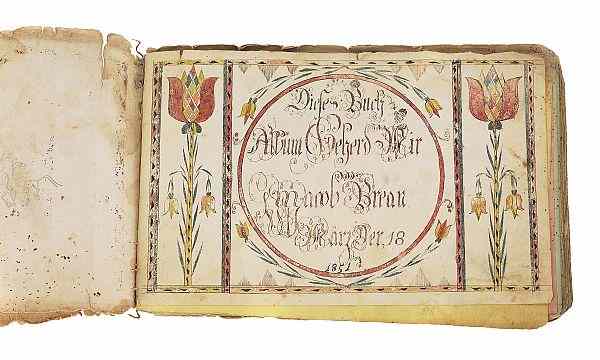 Dieses Buch
Album Geherd Mir
Jacob Brean
März Der. 18
185